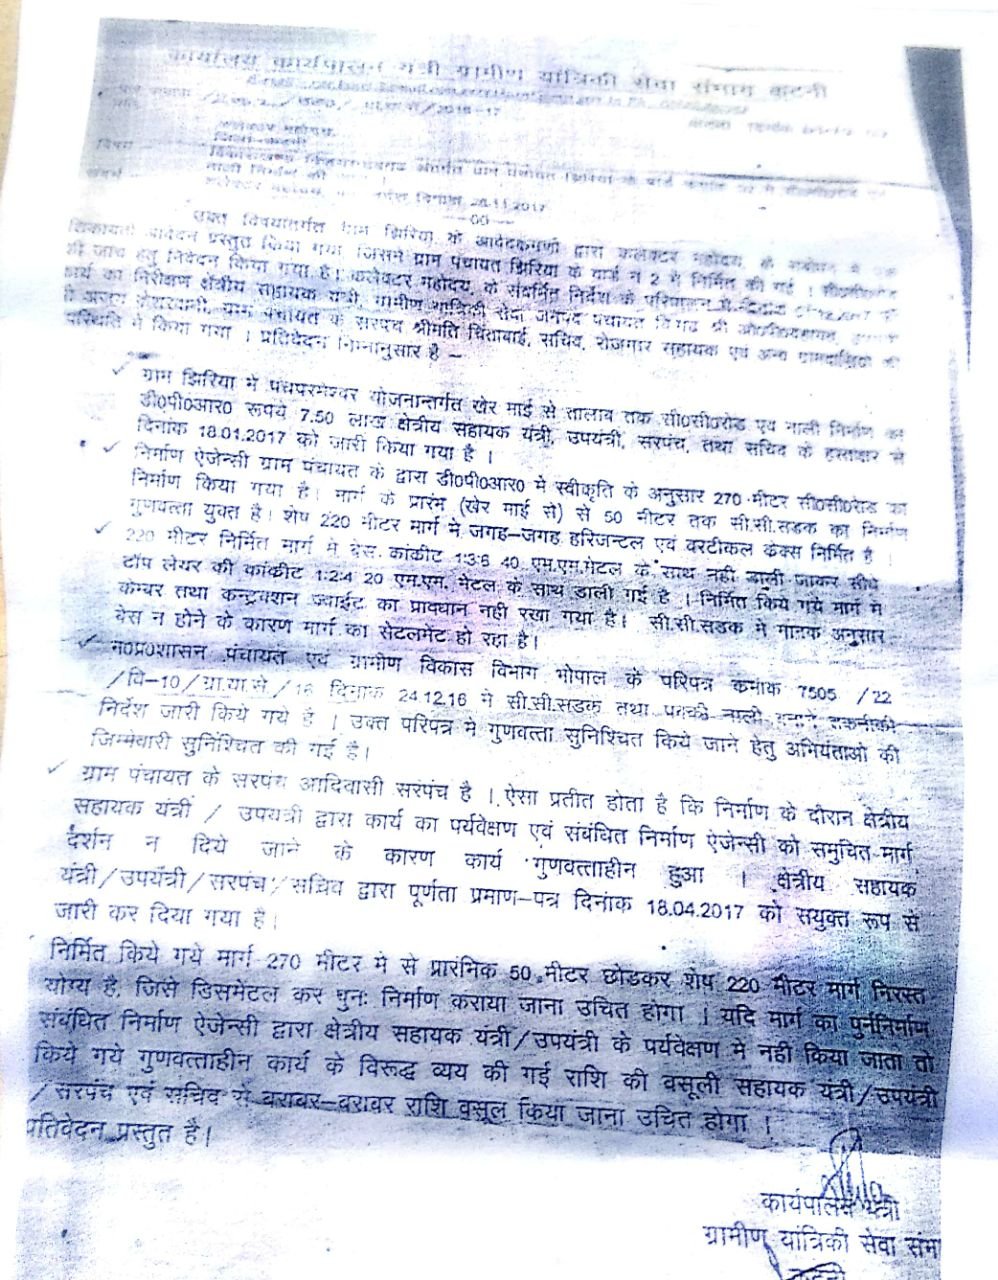 कार्यालय कार्यपालन यंत्री ग्रामीण यांत्रिकी सेवा संभाग कटनी
/2016-17
कलेक्टर महोदय
नाली निर्माण की
दिनांक 28.11.2017
--00--
उक्त विषयांतर्गत ग्राम झिरिया के आवेदकगणों द्वारा कलेक्टर महोदय
शिकायती आवेदन प्रस्तुत किया गया जिसमें ग्राम पंचायत झिरिया के वार्ड न 2 में निर्मित की गई । सी०सी०रोड
की जांच हेतु निवेदन किया गया है। कलेक्टर महोदय के संदर्भित निर्देश के परिपालन में
कार्य का निरीक्षण क्षेत्रीय सहायक यंत्री, ग्रामीण यांत्रिकी सेवा जनपद पंचायत
ग्राम पंचायत के सरपंच श्रीमति चिंताबाई, सचिव, रोजगार सहायक एवं अन्य ग्रामवासियों की
उपस्थिति में किया गया । प्रतिवेदन निम्नानुसार है –
✓ ग्राम झिरिया में पंचपरमेश्वर योजनान्तर्गत खेर माई से तालाब तक सी०सी०रोड एवं नाली निर्माण का
डी०पी०आर० रूपये 7.50 लाख क्षेत्रीय सहायक यंत्री, उपयंत्री, सरपंच, तथा सचिव के हस्ताक्षर से
दिनांक 18.01.2017 को जारी किया गया है ।
✓ निर्माण ऐजेन्सी ग्राम पंचायत के द्वारा डी०पी०आर० में स्वीकृति के अनुसार 270 मीटर सी०सी०रोड का
निर्माण किया गया है। मार्ग के प्रारंभ (खेर माई से) से 50 मीटर तक सी.सी.सडक का निर्माण
गुणवत्ता युक्त है। शेष 220 मीटर मार्ग में जगह–जगह हरिजन्टल एवं वरटीकल क्रेक्स निर्मित है ।
✓ 220 मीटर निर्मित मार्ग में बेस कांक्रीट 1:3:6 40 एम.एम.मेटल के साथ नही डाली जाकर सीधे
टॉप लेयर की कांक्रीट 1:2:4 20 एम.एम. मेटल के साथ डाली गई है । निर्मित किये गये मार्ग में
केम्बर तथा कन्ट्रक्शन ज्वाईंट का प्रावधान नही रखा गया है। सी.सी.सडक मे मानक अनुसार
बेस न होने के कारण मार्ग का सेटलमेंट हो रहा है।
✓ म०प्र०शासन पंचायत एवं ग्रामीण विकास विभाग भोपाल के परिपत्र कमांक 7505 /22
/वि–10/ग्रा.या.से./16 दिनांक 24.12.16 मे सी.सी.सडक तथा पक्की नाली बनाने तकनीकी
निर्देश जारी किये गये है । उक्त परिपत्र मे गुणवत्ता सुनिश्चित किये जाने हेतु अभियंताओ की
जिम्मेवारी सुनिश्चित की गई है।
✓ ग्राम पंचायत के सरपंच आदिवासी सरपंच है । ऐसा प्रतीत होता है कि निर्माण के दौरान क्षेत्रीय
सहायक यंत्री / उपयंत्री द्वारा कार्य का पर्यवेक्षण एवं संबंधित निर्माण ऐजेन्सी को समुचित मार्ग
दर्शन न दिये जाने के कारण कार्य गुणवत्ताहीन हुआ । क्षेत्रीय सहायक
यंत्री/उपयंत्री/सरपंच/सचिव द्वारा पूर्णता प्रमाण–पत्र दिनांक 18.04.2017 को सयुक्त रूप से
जारी कर दिया गया है।
निर्मित किये गये मार्ग 270 मीटर मे से प्रारंभिक 50 मीटर छोडकर शेष 220 मीटर मार्ग निरस्त
योग्य है, जिसे डिसमेंटल कर पुनः निर्माण कराया जाना उचित होगा । यदि मार्ग का पुर्ननिर्माण
संबंधित निर्माण ऐजेन्सी द्वारा क्षेत्रीय सहायक यंत्री/उपयंत्री के पर्यवेक्षण मे नही किया जाता तो
किये गये गुणवत्ताहीन कार्य के विरूद्ध व्यय की गई राशि की वसूली सहायक यंत्री/उपयंत्री
/सरपंच एवं सचिव से बराबर–बराबर राशि वसूल किया जाना उचित होगा ।
प्रतिवेदन प्रस्तुत है।
कार्यपालन यंत्री
ग्रामीण यांत्रिकी सेवा संभा
कटनी